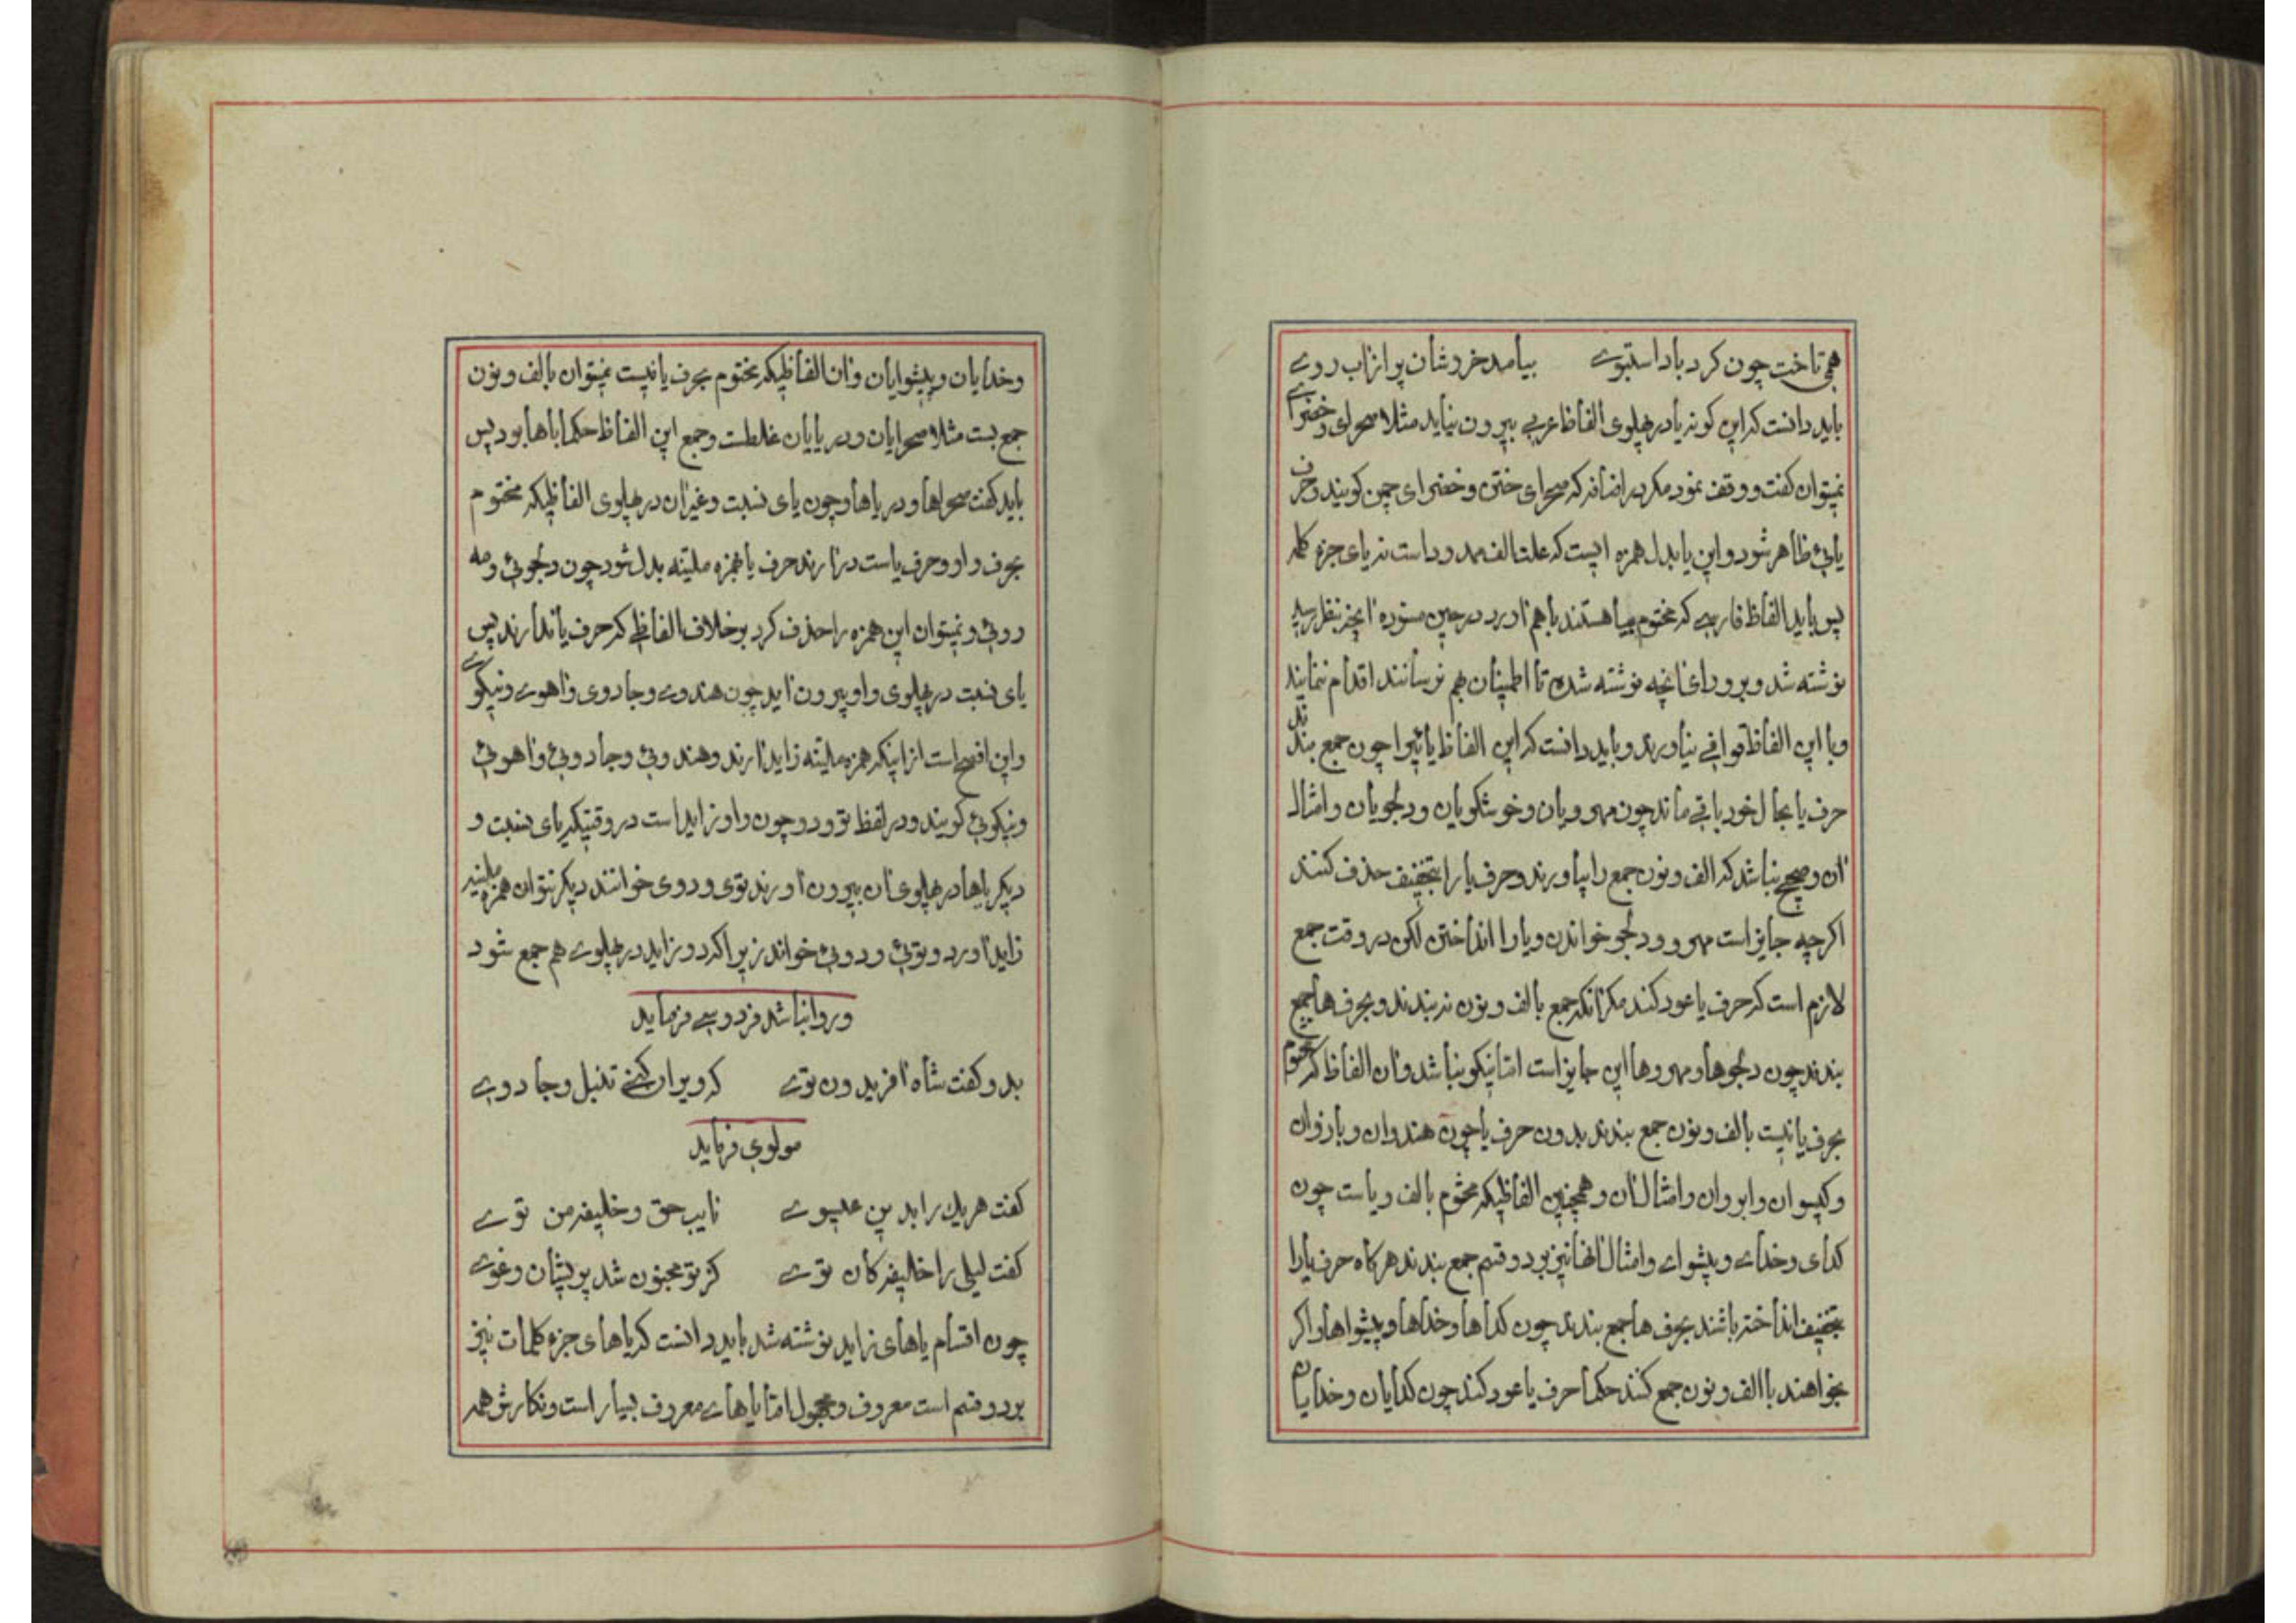 همی تاخت چون کرد باد استبوے بیامد خروشان پر از اب روے
باید دانست که این کونه یا در پهلوی الفاظ عربی بیرون نیاید مثلا صحرای و خضرائے
نمیتوان کفت و وقف نمود مکر در اضافه که صحرای ختن و خضرای چمن کویند و حرف
یائی ظاهر شود و این یا بدل همزه ایست که علت الف ممدود است نه یای جزء کلمه
پس باید الفاظ فارسے که مختوم بیا هستند باهم اورد در حین مسوده انچه بنظر رسید
نوشته شد و برو رای انچه نوشته شده تا اطمینان بهم نرسانند اقدام ننمایند
و با این الفاظ قوافے نیاورند و باید دانست که این الفاظ یائیرا چون جمع بندند
حرف یا بحال خود باقے ماند چون مهرویان و خوشکویان و دلجویان و امثال
ان و صحیح نباشد که الف و نون جمع را بیاورند و حرف یا را بتخفیف حذف کنند
اکرچه جایز است مهرو و دلجو خواندن و یا را انداختن لکن در وقت جمع
لازم است که حرف یا عود کند مکر انکه جمع بالف و نون نه بندند و بحرف ها جمع
بندند چون دلجوها و مهروها این جایز است امّا نیکو نباشد و ان الفاظ که مختوم
بحرف یا نیست بالف و نون جمع بندند بدون حرف یا چون هندوان و بازوان
و کیسوان و ابروان و امثال ان و همچنین الفاظیکه مختوم بالف و یاست چون
کدای و خداے و پیشواے و امثال انها نیز بر دو قسم جمع بندند هرکاه حرف یا را
بتخفیف انداخته باشند بحرف ها جمع بندند چون کداها و خداها و پیشواها و اکر
بخواهند باالف و نون جمع کنند حکما حرف یا عود کند چون کدایان و خدایان
و خدایان و پیشوایان و ان الفاظیکه مختوم بحرف یا نیست نمیتوان بالف و نون
جمع بست مثلا صحرایان و دریایان غلطست و جمع این الفاظ حکما باها بود پس
باید کفت صحراها و دریاها و چون یای نسبت و غیر ان در پهلوی الفاظیکه مختوم
بحرف واو و حرف یاست درارند حرف یا بهمزه ملینه بدل شود چون دلجوئی و مه
روئی و نمیتوان این همزه را حذف کرد بر خلاف الفاظے که حرف یا ندارند پس
یای نسبت در پهلوی واو بیرون اید چون هندوے و جادوی و اهوے و نیکوے
و این افصح است از اینکه همزه ملینه زاید ارند و هندوئی و جادوئی و اهوئی
و نیکوئی کویند و در لفظ تو و دو چون واو زاید است در وقتیکه یای نسبت و
دیکر یاها در پهلوی ان بیرون اورند توی و دوی خوانند دیکر نتوان همزه ملینه
زاید اورد و توئی و دوئی خواند زیرا که دو زاید در پهلوے هم جمع شود
و روا نباشد فردوسے فرماید
بدو کفت شاه افریدون توے که ویران کنے تنبل و جادوے
مولوی فرماید
کفت هریک را بدین عیسوے نایب حق و خلیفه من توے
کفت لیلی را خلیفه کان توے کز تو مجنون شد پریشان و غوے
چون اقسام یاهای زاید نوشته شد باید دانست که یاهای جزء کلمات نیز
بر دو قسم است معروف و مجهول امّا یاهاے معروف بسیار است و نکارش همه